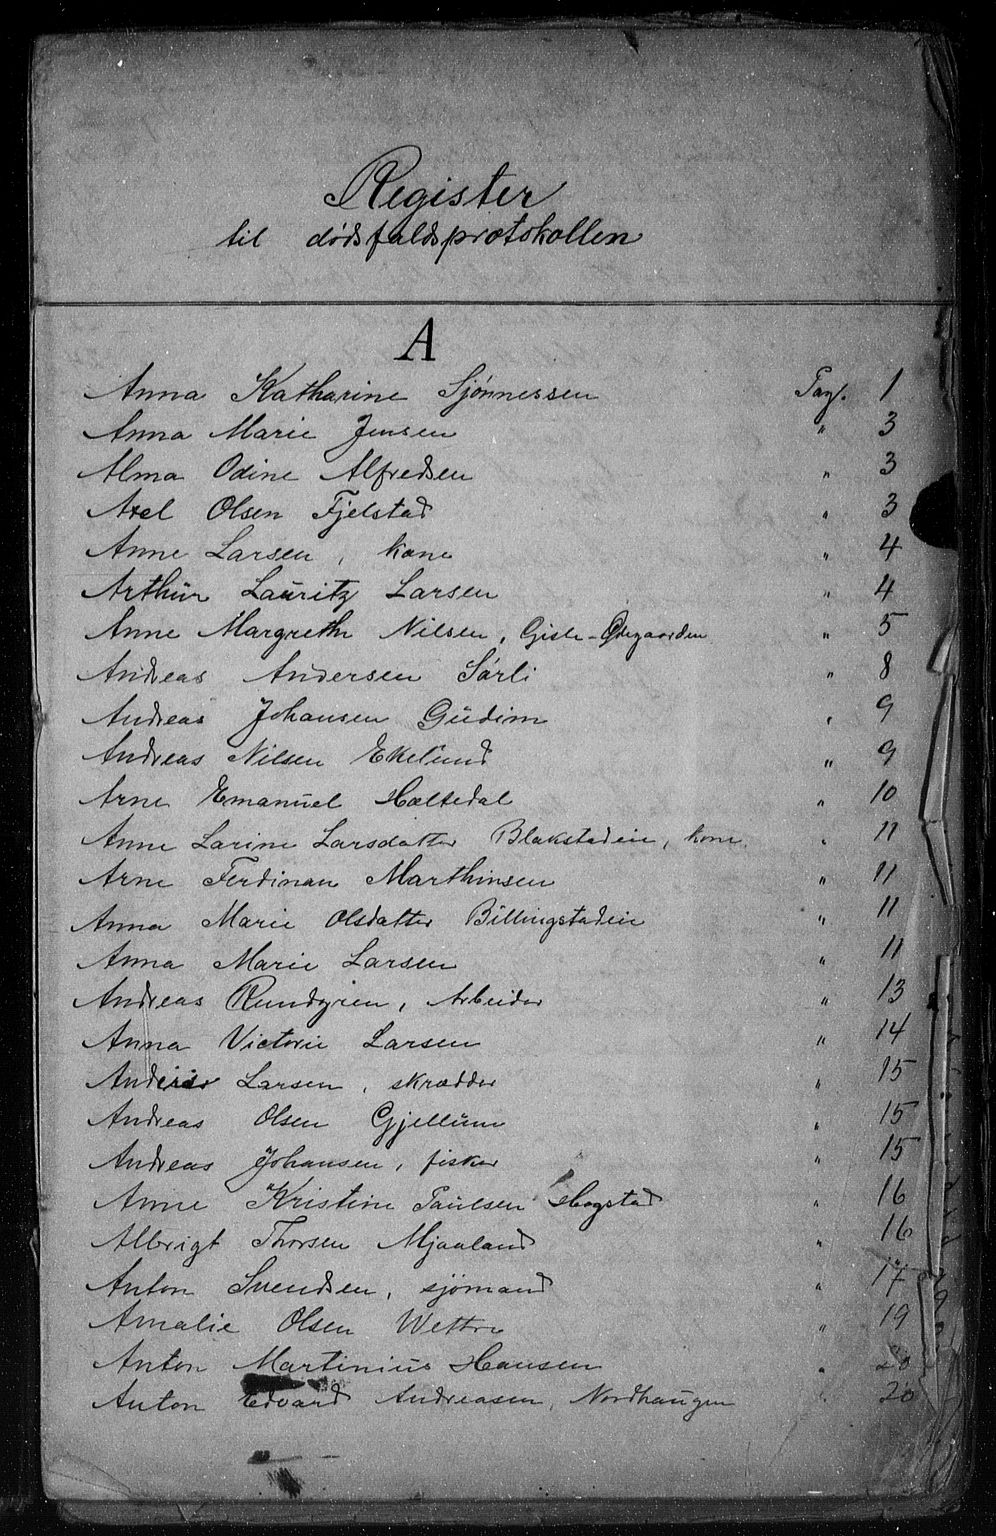 Register
til dødsfaldsprotokollen
A
Anna Katharine Sjønnessen Pag. 1
Anna Marie Jensen " 3
Alma Odine Alfredsen " 3
Axel Olsen Fjelstad " 3
Anne Larsen, kone " 4
Arthur Lauritz Larsen " 4
Anne Margrethe Nilsen, Gisle-Ødegaarden " 5
Andreas Andersen Sørli " 8
Andreas Johansen Gudim " 9
Andreas Nilsen Ekelund " 9
Arne Emanuel Holtedal " 10
Anne Larine Larsdatter Blakstadeie, kone " 11
Arne Ferdinan Marthinsen " 11
Anna Marie Olsdatter Billingstadeie " 11
Anna Marie Larsen " 11
Andreas Rundgren, Arbeider " 13
Anna Victorie Larsen " 14
Larsen, skrædder " 15
Andreas Olsen Gjellum " 15
Andreas Johansen, fisker " 15
Anne Kristine Paulsen Hogstad " 16
Albrigt Thorsen Mjaaland " 16
Anton Svendsen, sjömand " 17
Amalie Olsen Wettre " 19
Anton Martinius Hansen " 20
Anton Edvard Andreasen, Nordhaugen " 20